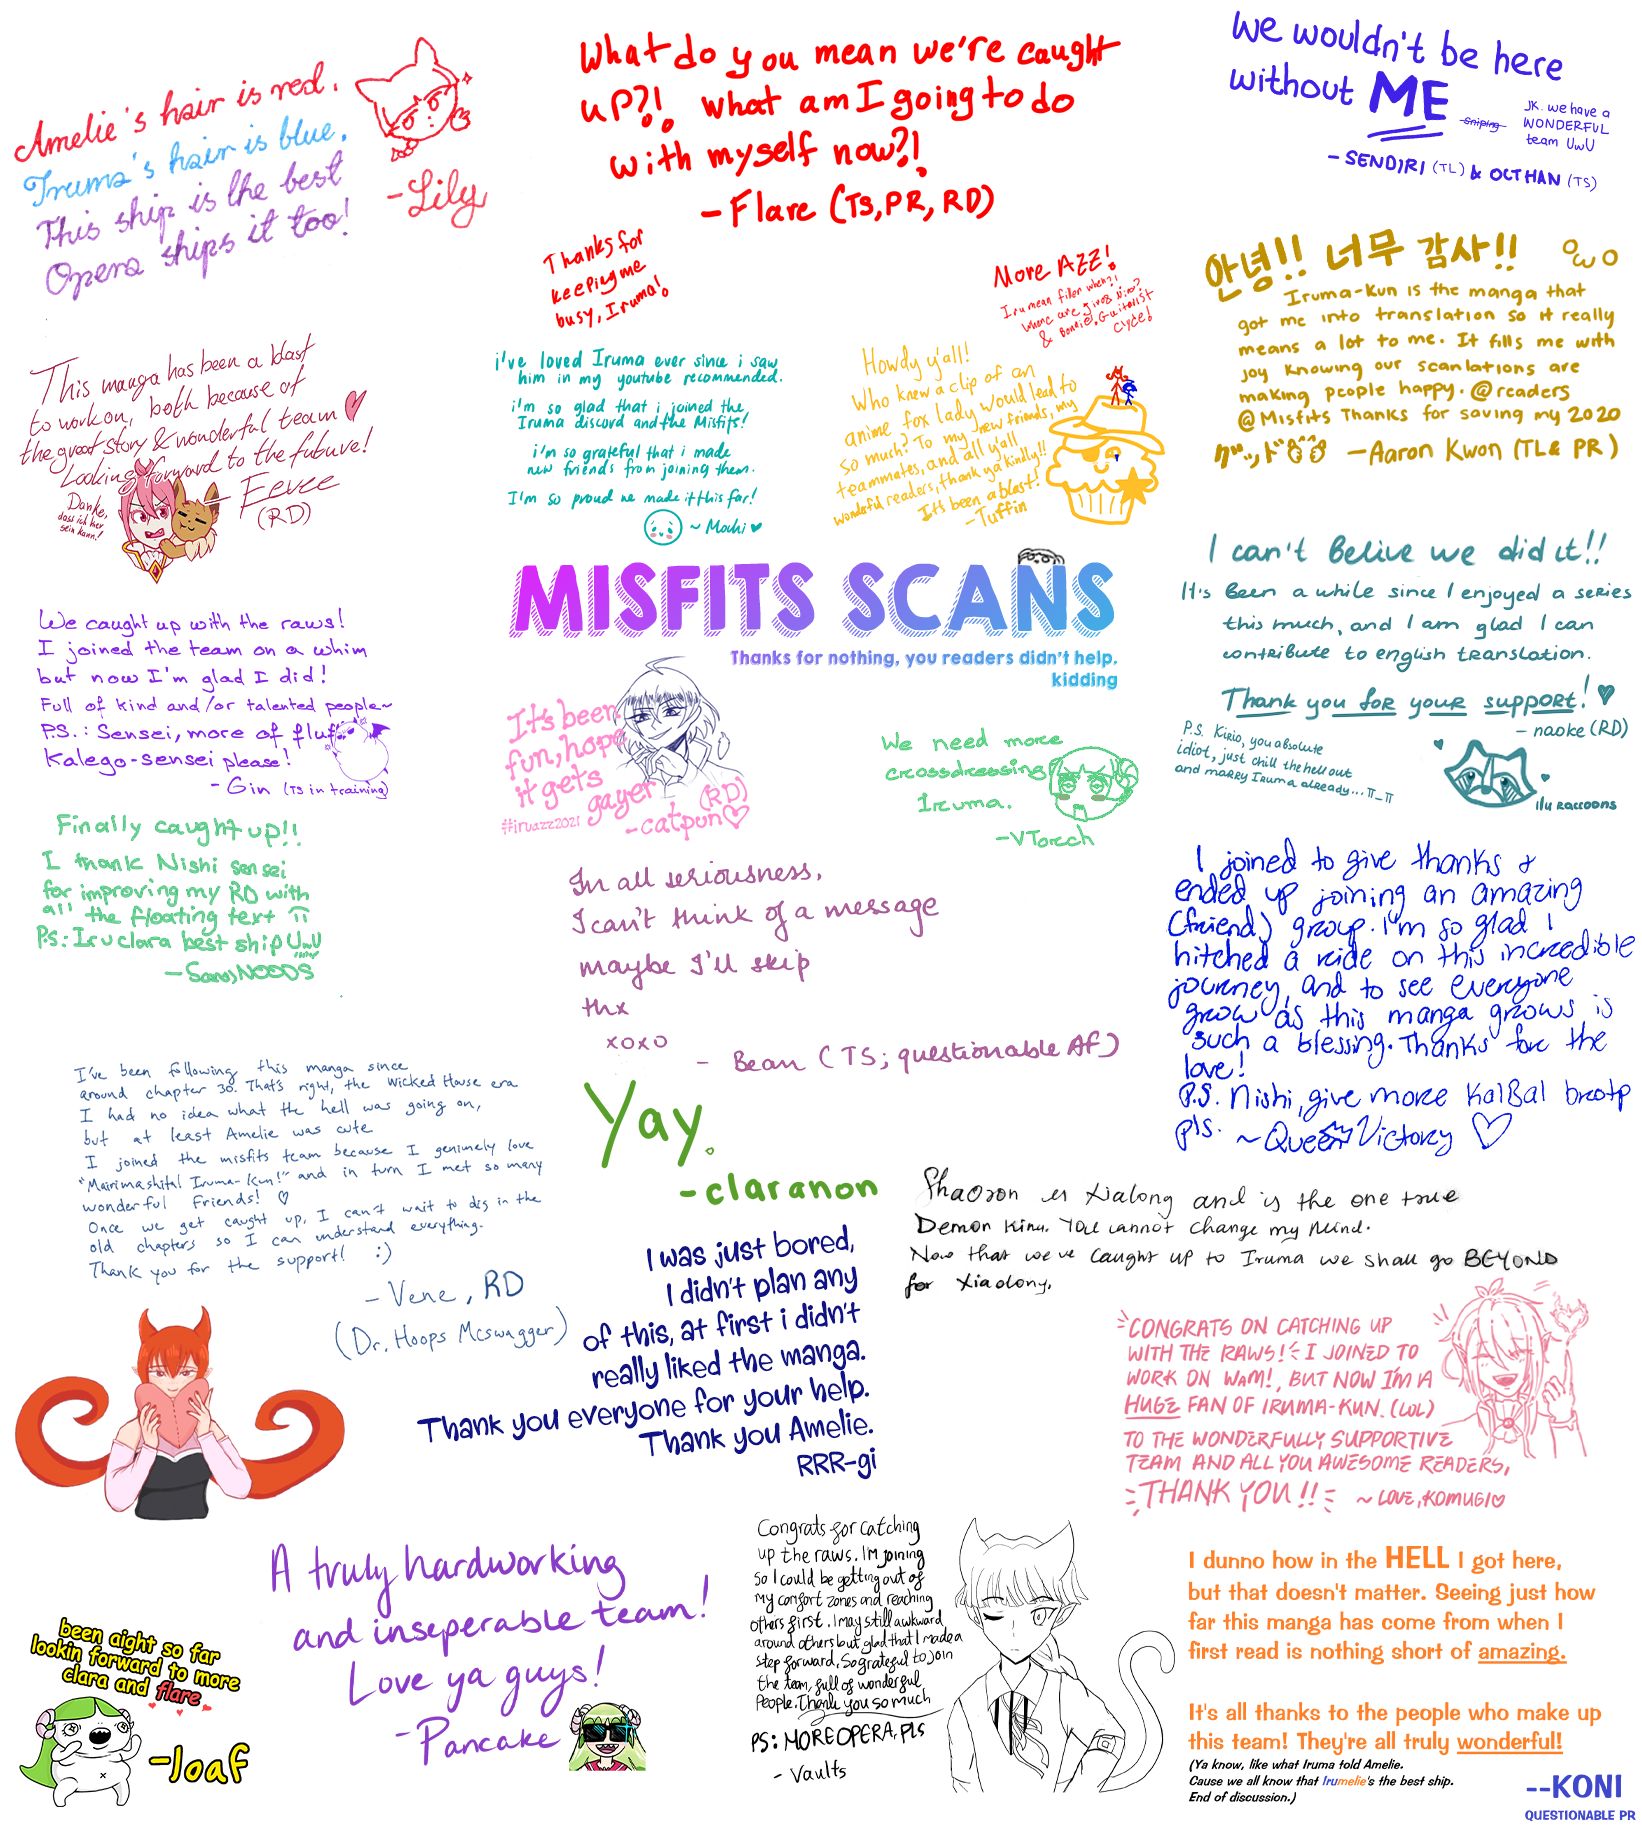 Amelie's hair is red.
Iruma's hair is blue.
This ship is the best
Opera ships it too!
-Lily
What do you mean we're caught
up?!. what am I going to do
with myself now?!
- Flare (TS, PR, RD)
Thanks for
keeping me
busy, Iruma!
More AZZ!
Irumean filler when?!
& Bonnie, Guitarist
Clyde!
We wouldn't be here
without ME
sniping
JK. we have a
WONDERFUL
team UwU
- SENDIRI (TL) & OCTHAN (TS)
안녕!! 너무 감사!! OwO
Iruma-Kun is the manga that
got me into translation so it really
means a lot to me. It fills me with
joy knowing our scanlations are
making people happy. @readers
@Misfits Thanks for saving my 2020
- Aaron Kwon (TL & PR)
This manga has been a blast
to work on, both because of
the great story & wonderful team ♥
Looking forward to the future!
- Eevee
(RD)
Danke,
dass ich hier
sein kann!
i've loved Iruma ever since i saw
him in my youtube recommended.
i'm so glad that i joined the
Iruma discord and the Misfits!
i'm so grateful that i made
new friends from joining them.
I'm so proud we made it this far!
~ Mochi ♥
Howdy y'all!
Who knew a clip of an
anime fox lady would lead to
so much? To my new friends, my
teammates, and all y'all
wonderful readers, thank ya kindly!!
It's been a blast!
- Tuffin
I can't Belive we did it!!
It's Been a while since I enjoyed a series
this much, and I am glad I can
contribute to english translation.
Thank you for your support! ♥
- naoke (RD)
P.S. Kirio, you absolute
idiot, just chill the hell out
and marry Iruma already... π_π
ilu raccoons
MISFITS SCANS
Thanks for nothing, you readers didn't help.
kidding
We caught up with the raws!
I joined the team on a whim
but now I'm glad I did!
Full of kind and/or talented people~
P.S.: Sensei, more of fluff
Kalego-sensei please!
- Gin (TS in training)
It's been
fun, hope
it gets
gayer
#iruazz2021
(RD)
-catpun♡
We need more
crossdressing
Iruma.
-VTorch
Finally caught up!!
I thank Nishi sensei
for improving my RD with
all the floating text π
P.s: Iruclara best ship UwU
- SansyNOODS
In all seriousness,
I can't think of a message
maybe I'll skip
thx
xoxo
- Bean (TS; questionable AF)
I joined to give thanks &
ended up joining an amazing
(friend) group. I'm so glad I
hitched a ride on this incredible
journey, and to see everyone
grow as this manga grows is
such a blessing. Thanks for the
love!
P.S. Nishi, give more KalBal brotp
pls. ~Queen Victory ♡
I've been following this manga since
around chapter 30. That's right, the Wicked House era
I had no idea what the hell was going on,
but at least Amelie was cute
I joined the misfits team because I genuinely love
"Mairimashita! Iruma-Kun!" and in turn I met so many
wonderful Friends! ♡
Once we get caught up, I can't wait to dig in the
old chapters so I can understand everything.
Thank you for the support! :)
- Vene, RD
(Dr. Hoops McSwagger)
Yay.
-claranon
Shaoron is Xialong and is the one true
Demon King. You cannot change my mind.
Now that we've caught up to Iruma we shall go BEYOND
for Xiaolong.
I was just bored,
I didn't plan any
of this, at first i didn't
really liked the manga.
Thank you everyone for your help.
Thank you Amelie.
RRR-gi
CONGRATS ON CATCHING UP
WITH THE RAWS! I JOINED TO
WORK ON WAM!, BUT NOW I'M A
HUGE FAN OF IRUMA-KUN. (LOL)
TO THE WONDERFULLY SUPPORTIVE
TEAM AND ALL YOU AWESOME READERS,
THANK YOU!!
~ LOVE, KOMUGI♡
A truly hardworking
and inseperable team!
Love ya guys!
-Pancake
been aight so far
lookin forward to more
clara and flare
-loaf
Congrats for catching
up the raws. I'm joining
so I could be getting out of
my comfort zones and reaching
others first. I may still awkward
around others but glad that I made a
step forward. So grateful to join
the team, full of wonderful
people. Thank you so much
PS: MORE OPERA, PLS
- Vaults
I dunno how in the HELL I got here,
but that doesn't matter. Seeing just how
far this manga has come from when I
first read is nothing short of amazing.
It's all thanks to the people who make up
this team! They're all truly wonderful!
(Ya know, like what Iruma told Amelie.
Cause we all know that Irumelie's the best ship.
End of discussion.)
--KONI
QUESTIONABLE PR